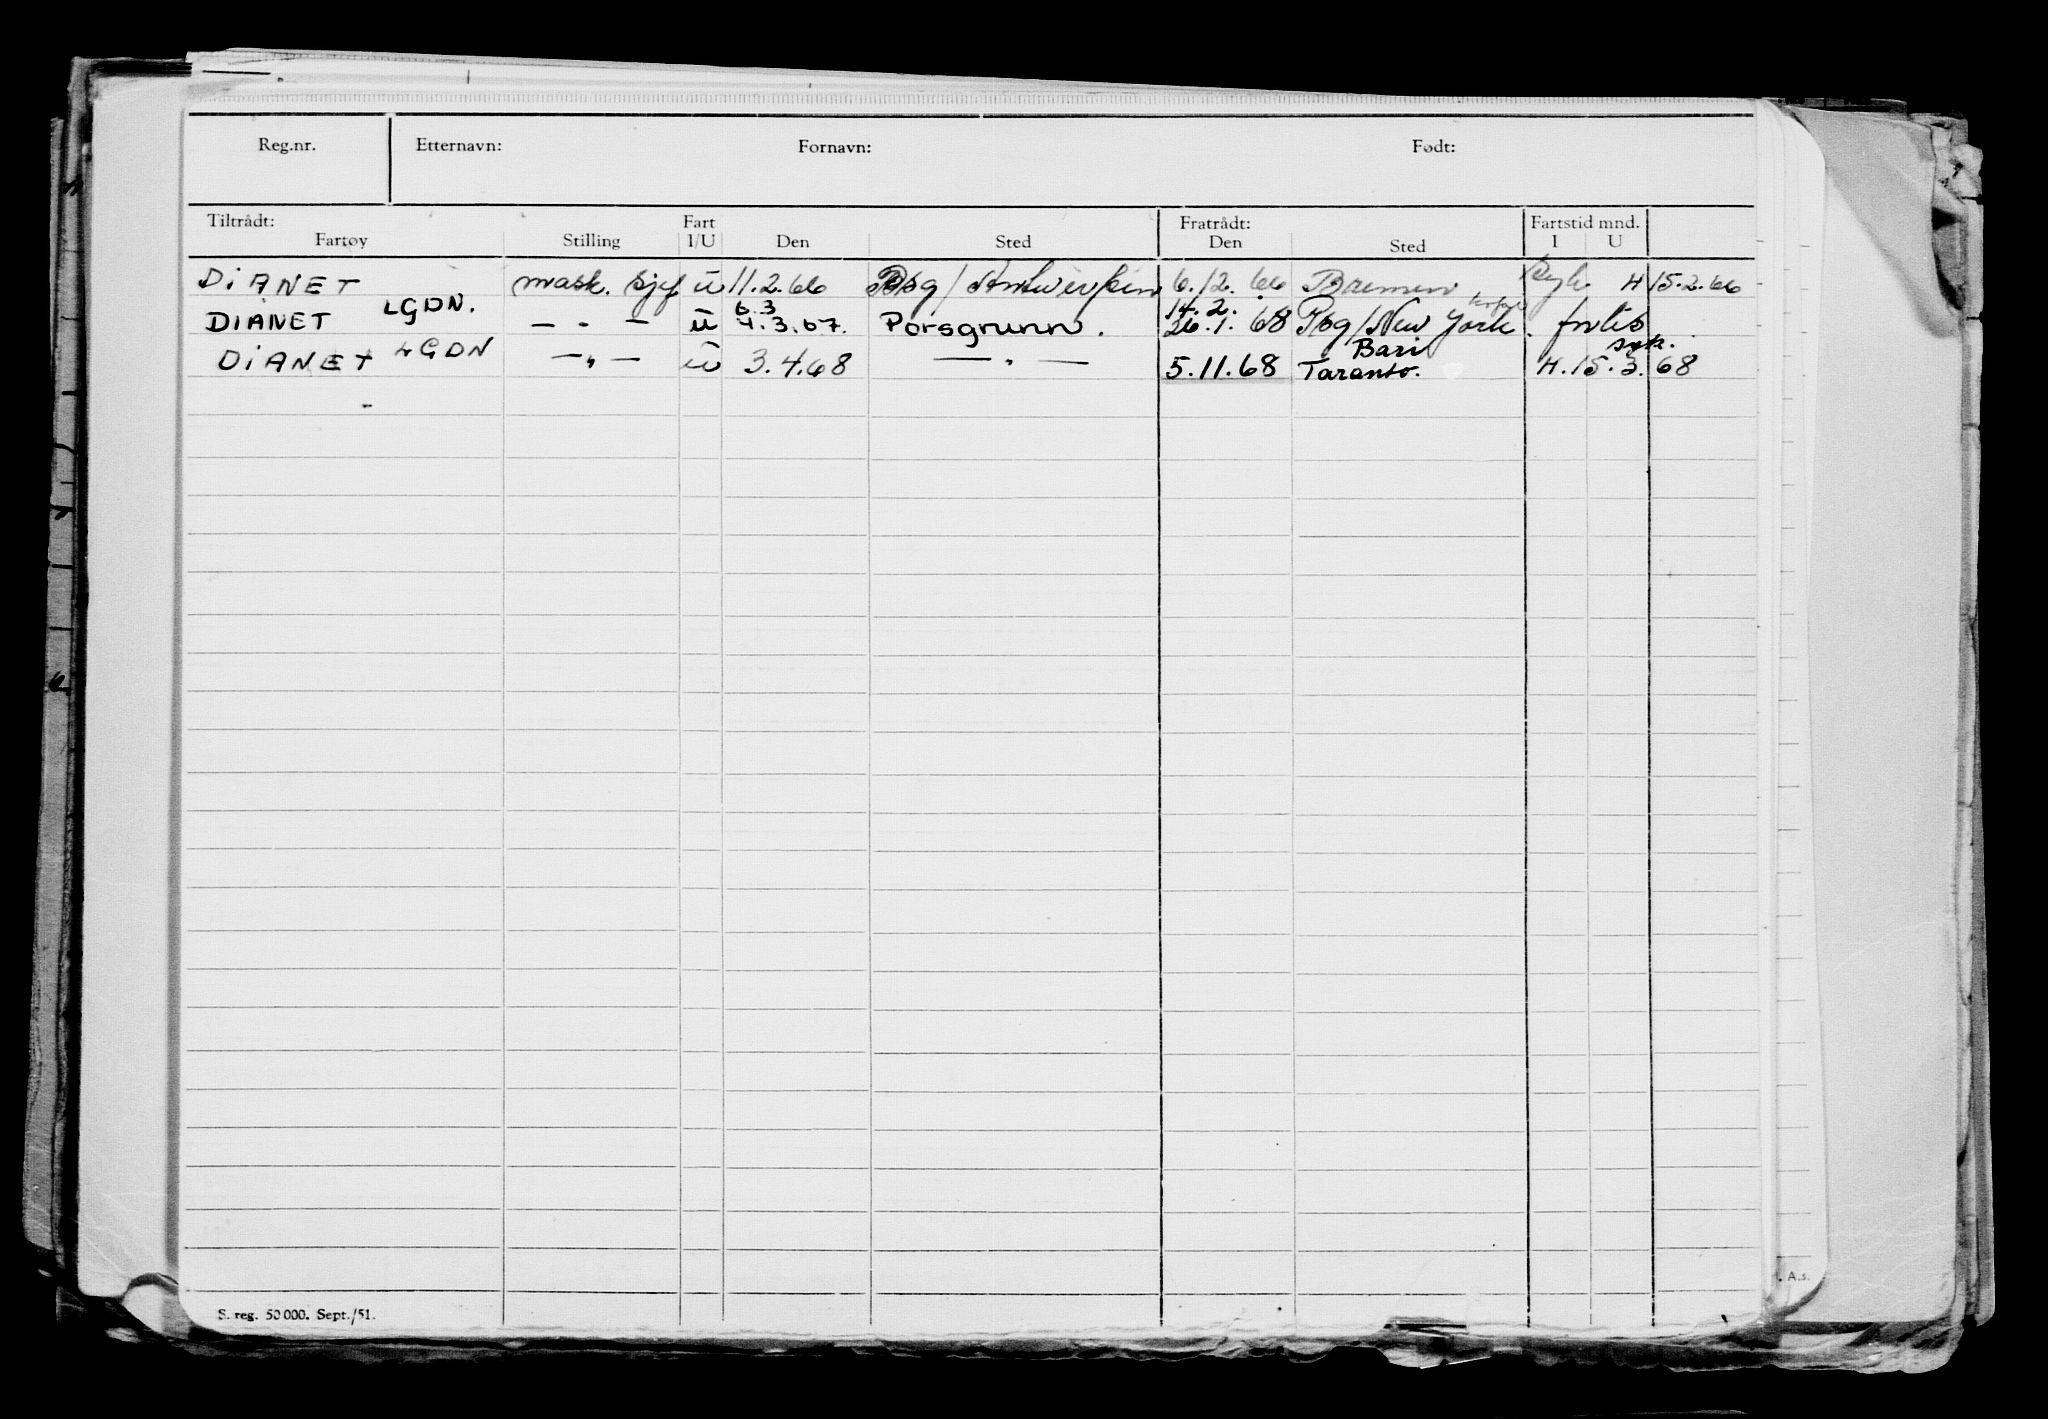 Reg.nr. Etternavn: Fornavn: Født:
Tiltrådt: Fart Fratrådt: Fartstid mnd.
Fartøy Stilling I/U Den Sted Den Sted I U
DiANET mask. sjef u 11.2.66 Psg/Antwerpen 6.12.66 Bremen H 15.2.66
LGDN. 6.3 14.2.
DIANET — " — u 4.3.67. Porsgrunn. 26.1.68 Psg/New York.
LGDN Bari syk.
DiANET — " — u 3.4.68 — " — 5.11.68 Taranto. H.15.3.68
S. reg. 50 000. Sept./51.
. A.s.